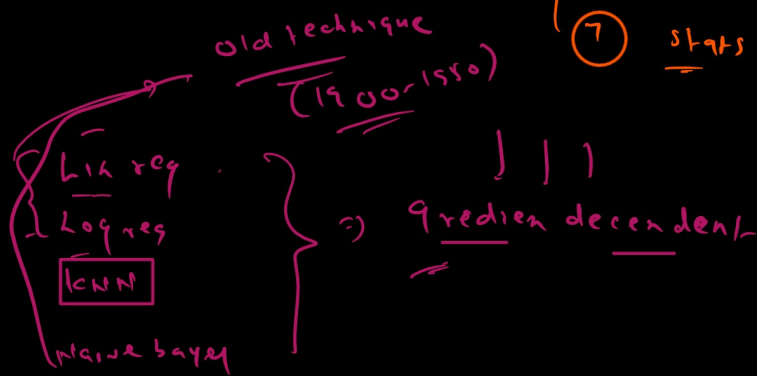 7 stars
old technique
(1900-1980)
Lin reg
Log reg
KNN
Naive bayes
=> Gredien decendent